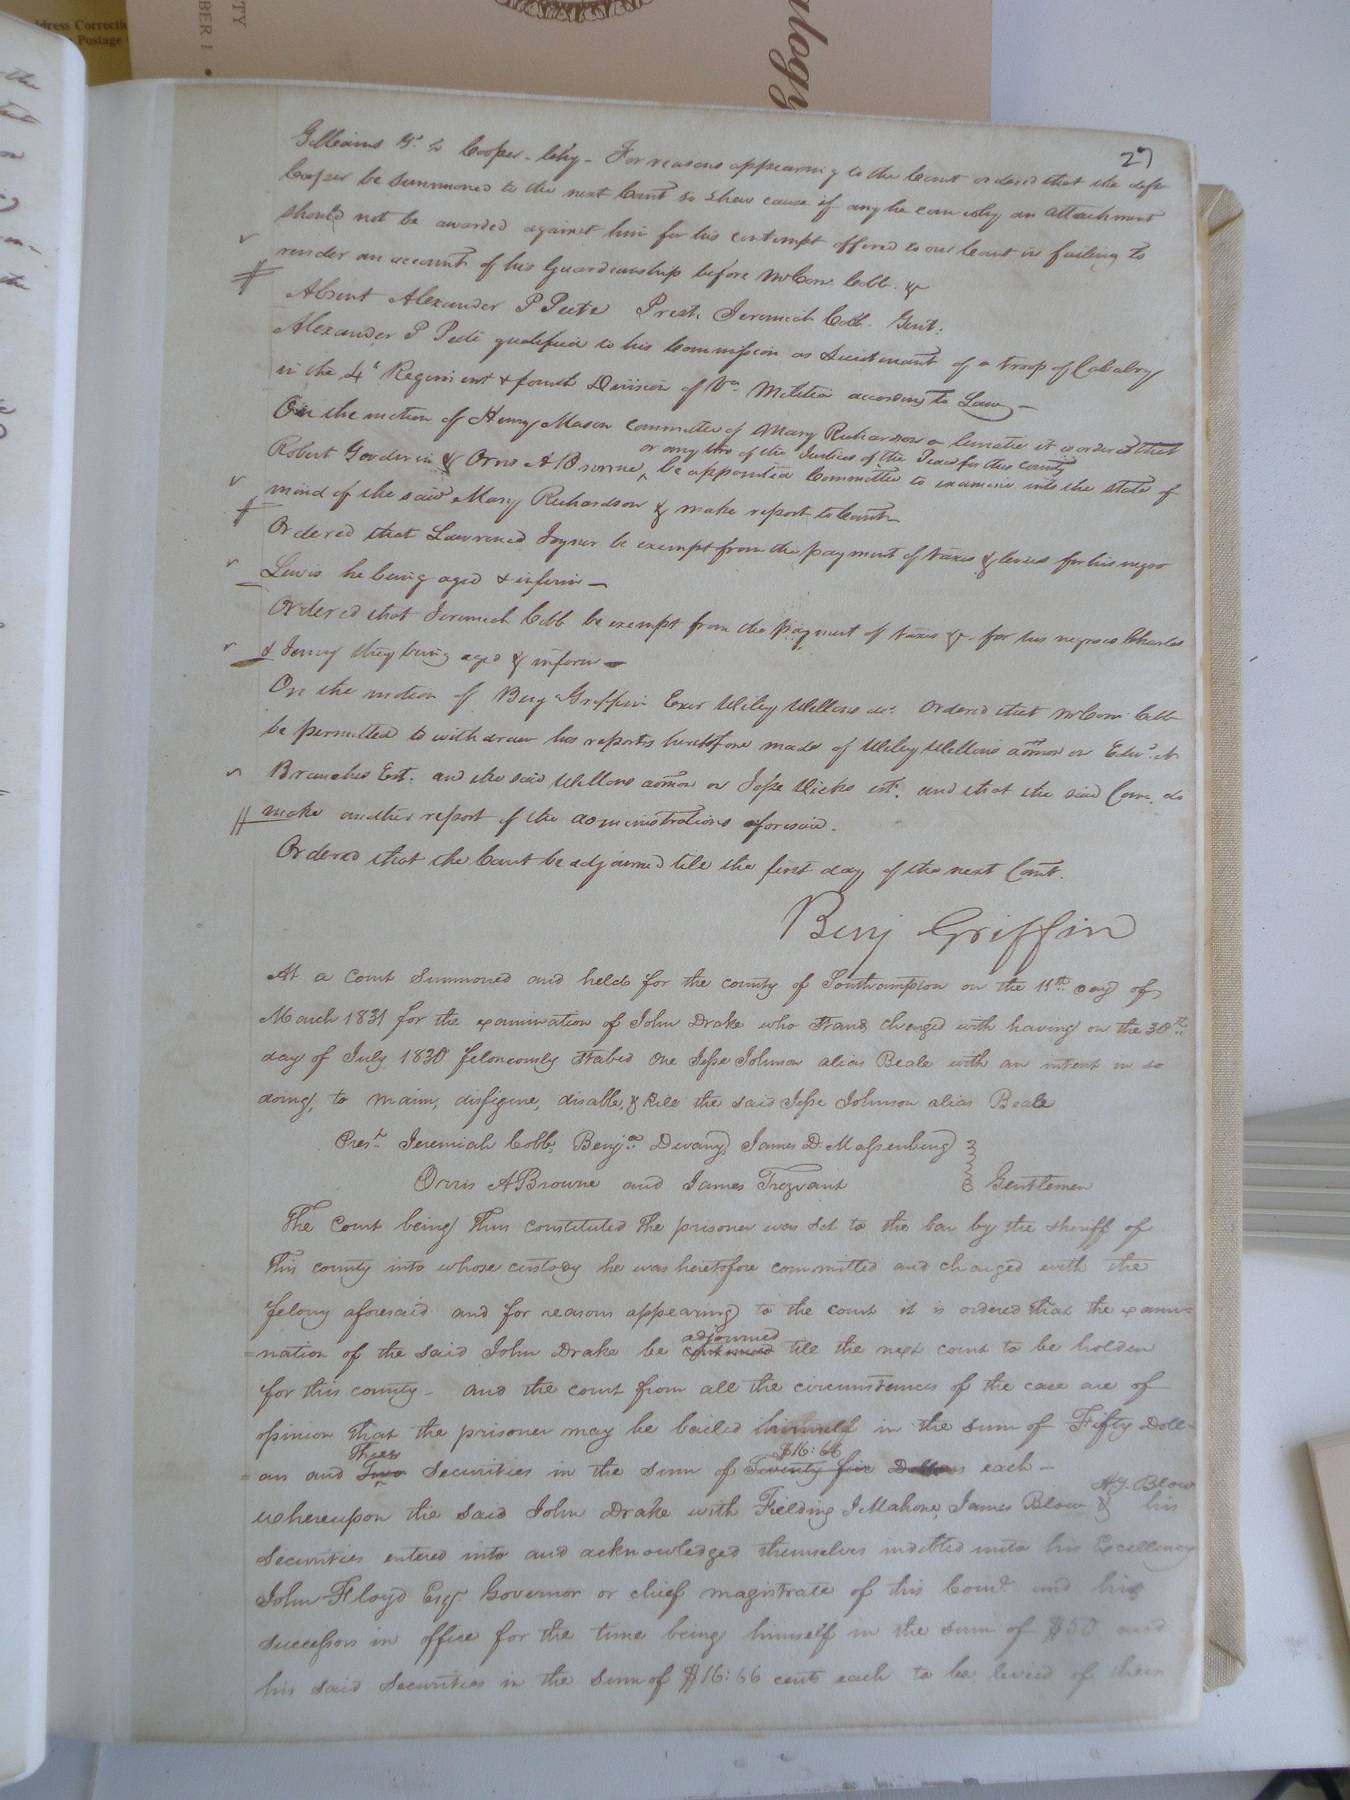 dress Correctio
Postage
TY
BER 1 •
alogy
27
Gilliams Gr. vs Cooper - Chy - For reasons appearing to the Court ordered that the deft
Cooper be summoned to the next Court to shew cause if any he can why an attachment
should not be awarded against him for his contempt offered to our Court in failing to
render an account of his Guardianship before Mr Com. Cobb. &
Absent Alexander P Peete Prest. Jeremiah Cobb. Gent.
Alexander P Peete qualified to his Commission as Lieutenant of a troop of Cavalry
in the 4th Regiment & fourth Division of Va. Militia according to Law —
On the motion of Henry Mason committee of Mary Richardson a lunatic it is ordered that
or any two of the Justices of the Peace for this County
Robert & Orris A Browne, ^ be appointed Committee to examine into the state of
mind of the said Mary Richardson & make report to Court —
Ordered that Lawrence Joyner be exempt from the payment of taxes & levies for his negro
Lewis he being aged & infirm —
Ordered that Jeremiah Cobb be exempt from the payment of taxes &c. for his negroes Charles
& Jenny they being aged & infirm —
On the motion of Benj Griffin Exor Wiley Wellons dec. Ordered that Mr Com: Cobb
be permitted to withdraw his reports heretofore made of Wiley Wellons admor on Edw.
Branches Est. and the said Wellons admor on Jesse Hicks est. and that the said Com. do
make another report of the administrations aforesaid.
Ordered that the Court be adjourned till the first day of the next Court.
Benj Griffin
At a court summoned and held for the county of Southampton on the 11th day of
March 1831 for the examination of John Drake who stands charged with having on the 30th
day of July 1830 feloneously stabed one Jesse Johnson alias Beale with an intent in so
doing, to maim, disfigure, disable, & kill the said Jesse Johnson alias Beale
Prest. Jeremiah Cobb, Benja. Devany, James D. Massenburg
Orris A Browne and James Trezvant } Gentlemen
The court being thus constituted the prisoner was set to the bar by the sheriff of
this county into whose custody he was heretofore committed and charged with the
felony aforesaid and for reasons appearing to the court it is ordered that the exami=
adjourned
=nation of the said John Drake be continued till the next court to be holden
for this county - and the court from all the circumstances of the case are of
opinion that the prisoner may be bailed himself in the sum of Fifty Doll=
Three $16:66
=ars and Two securities in the sum of Twenty five Dollars each —
A.J. Blow
whereupon the said John Drake with Fielding J Mahone, James Blow & his
securities entered into and acknowledged themselves indebted unto his Excellency
John Floyd Esqr. Governor or chief magistrate of this Comd. and his
successors in office for the time being himself in the sum of $50 and
his said securities in the sum of $16:66 cents each to be levied of their